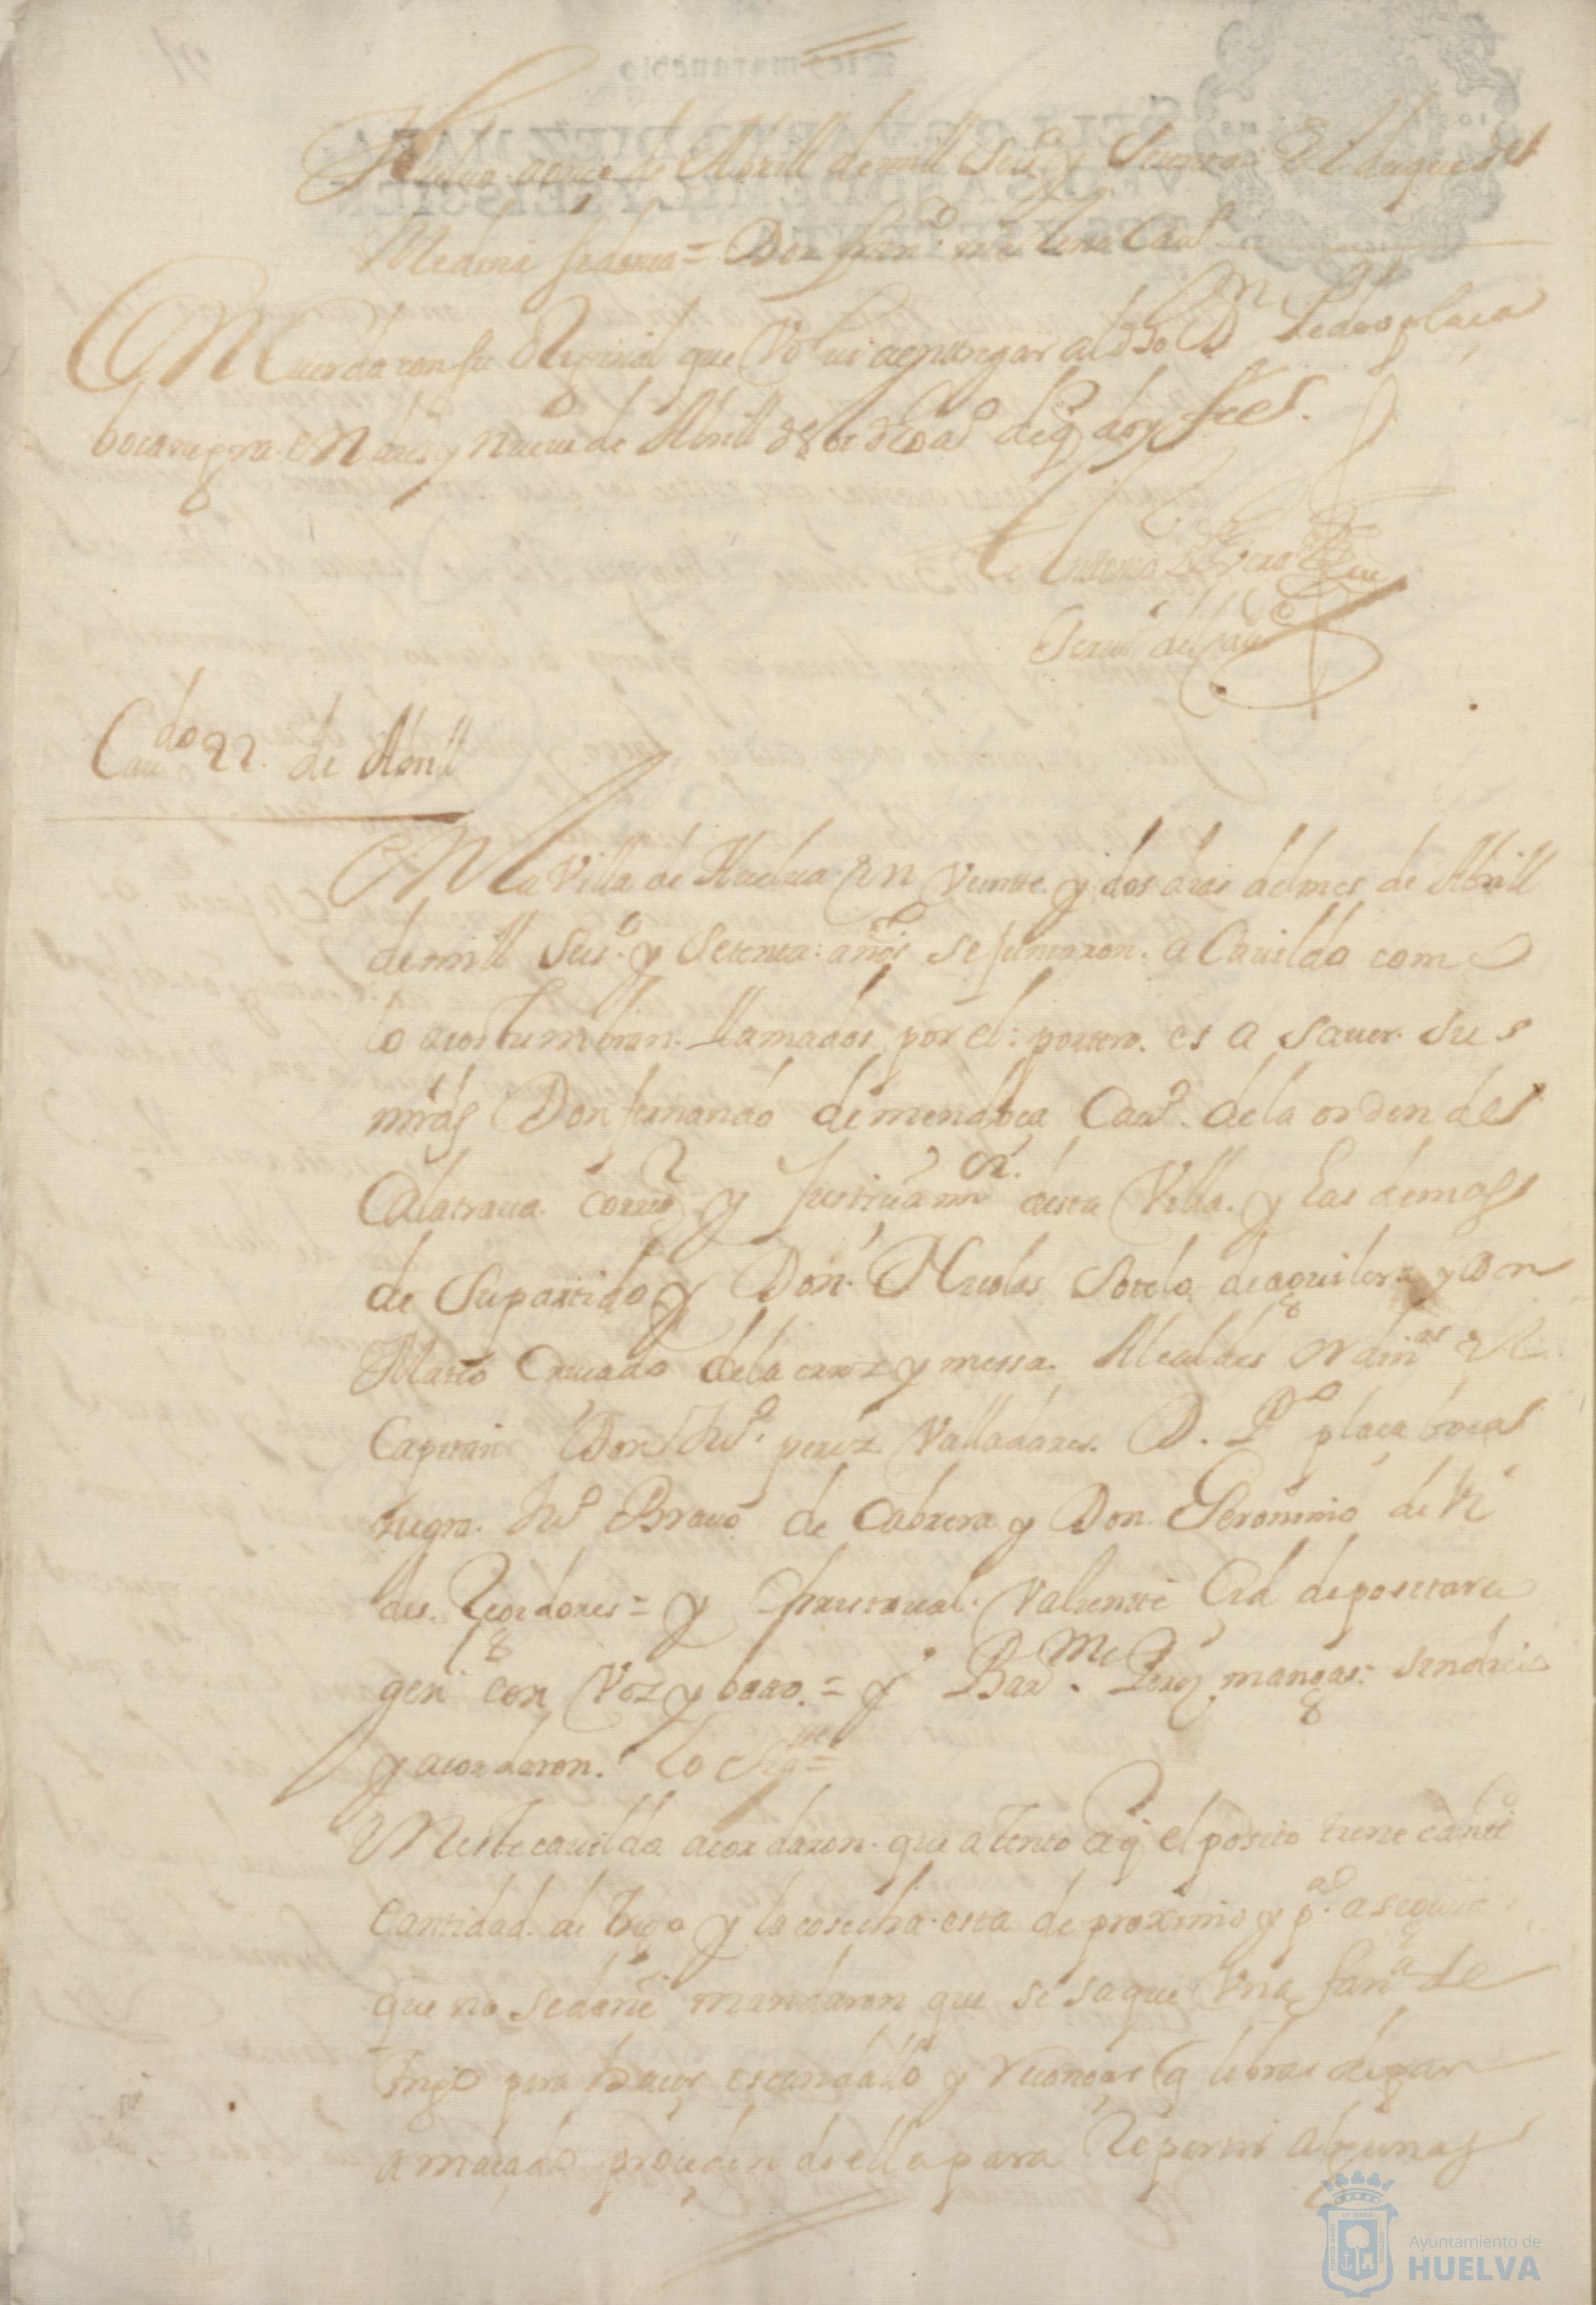 Huelva a once de Abrill de mill seisº y setenta = El duque de
Medina sidonia = Don franco
Cuerda con su Original que Volui a entregar al dho Dn Pedro plaça
bocanegra en diez y nueue de Abrill de de q doy fee
Antonio
Scriuº del Cauº
Caudo 22 de Abrill
En La Villa de Huelua en Veinte y dos dias del mes de Abrill
de mill seisº y setenta años se juntaron a Cauildo como
lo acostumbran llamados por el portero es a sauer sus
mrds Don fernando de mendoça Cauº de la orden de
Calatraua corregr y Justicia mor desta Villa y las demas
de su partido y Don Nicolas Sotelo de aguilera y Don
Matto Cruçado de la cruz y messa Alcaldes ordinos el
Capitan Don Juº perez Valladares D. Pº plaça boca
negra Juº Brauo de Cabrera y Don Geronimo de
des Regidores = y christoual Valiente Cid depositario
genl con Voz y boto = y Barme Perez mangas sindico
y acordaron lo sigte =
En este cauildo acordaron que atento a q el posito tiene
cantidad de trigo y la cosecha esta de proximo y pa asegurar
que no se dañe mandaron que se saque Una fana de
trigo para hacer escandallo y reconocer q libras de pan
amaçado proceden de ella para Repartir algunas
Ayuntamiento de
HUELVA